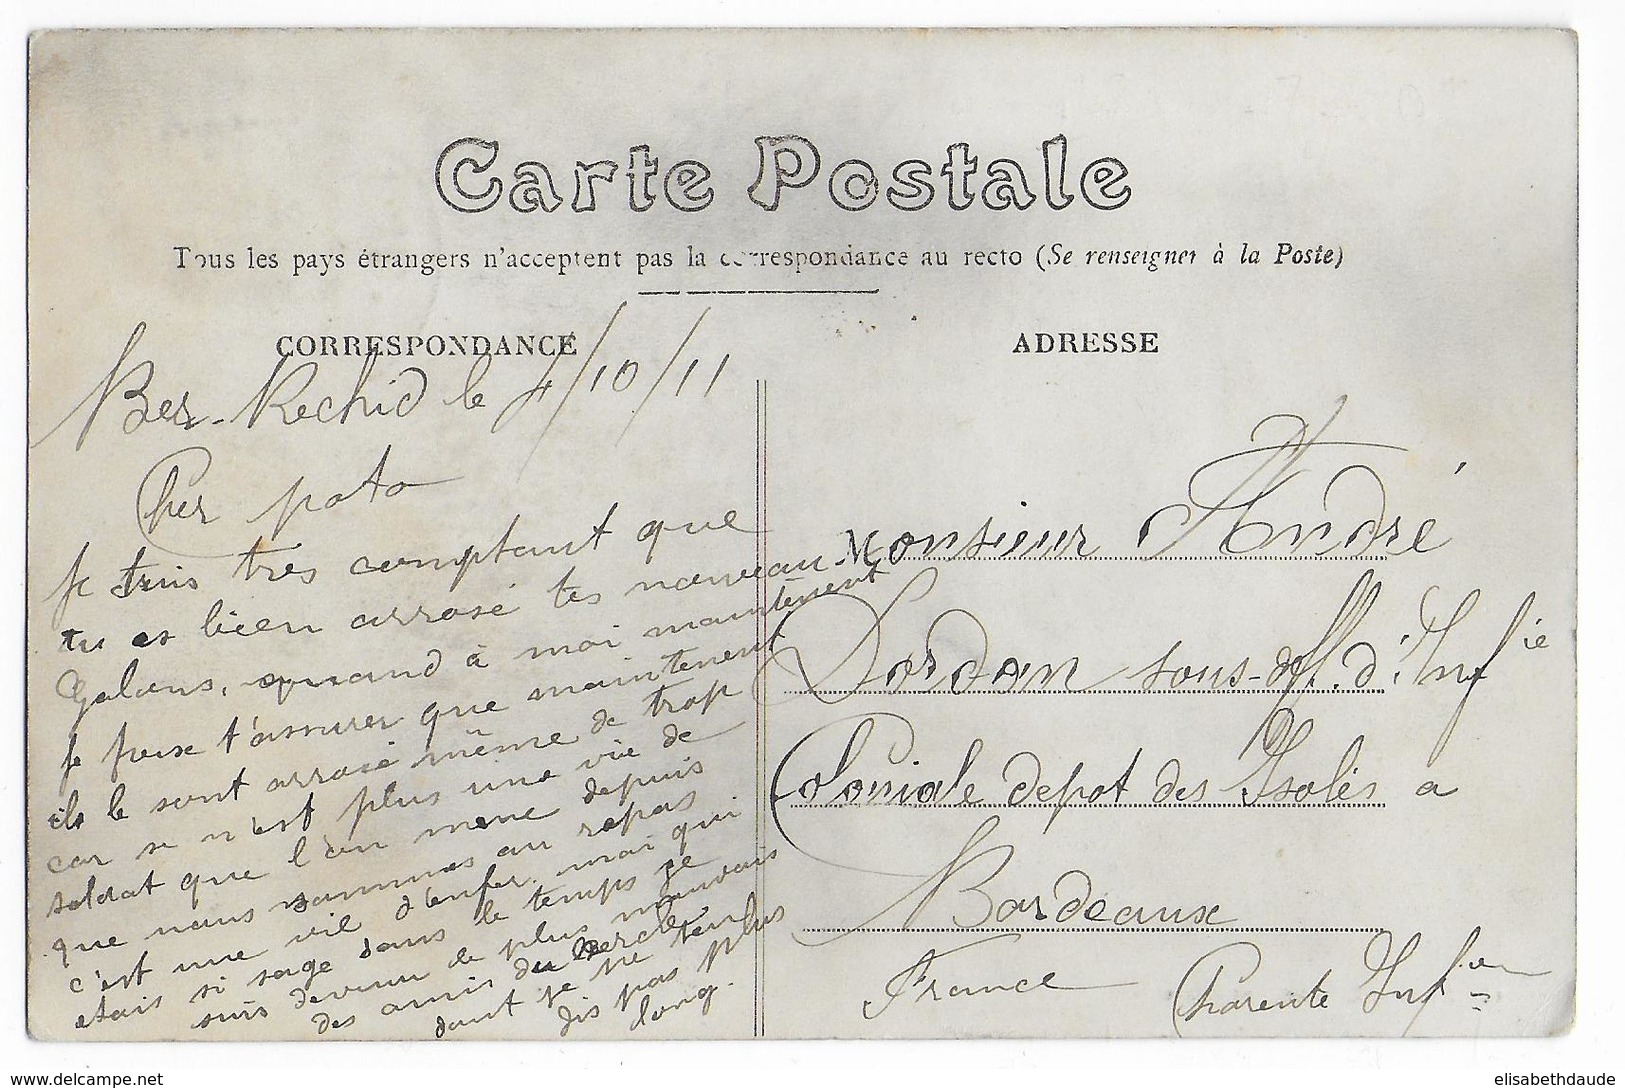 Carte Postale
Tous les pays étrangers n'acceptent pas la correspondance au recto (Se renseigner à la Poste)
CORRESPONDANCE
Ber-Rechid le 4/10/11
Cher poto
Je suis très comptant que
tu as bien arrosé tes nouveau
Galons, quand à moi maintenent
je peux t'assurer que maintenent
ils le sont arrosé même de trop
car se n'est plus une vie de
soldat que l'on mène depuis
que nous sommes au repas
c'est une vie d'enfer. moi qui
etais si sage dans le temps je
suis devenu le plus mauvais
des amis du cercle
dont je ne t'en
dis pas plus
long.
ADRESSE
Monsieur André
Dordan sous-off. d'Infie
Coloniale depot des Isolés a
Bordeaux
France Charente Infer
elisabethdaude
www.delcampe.net